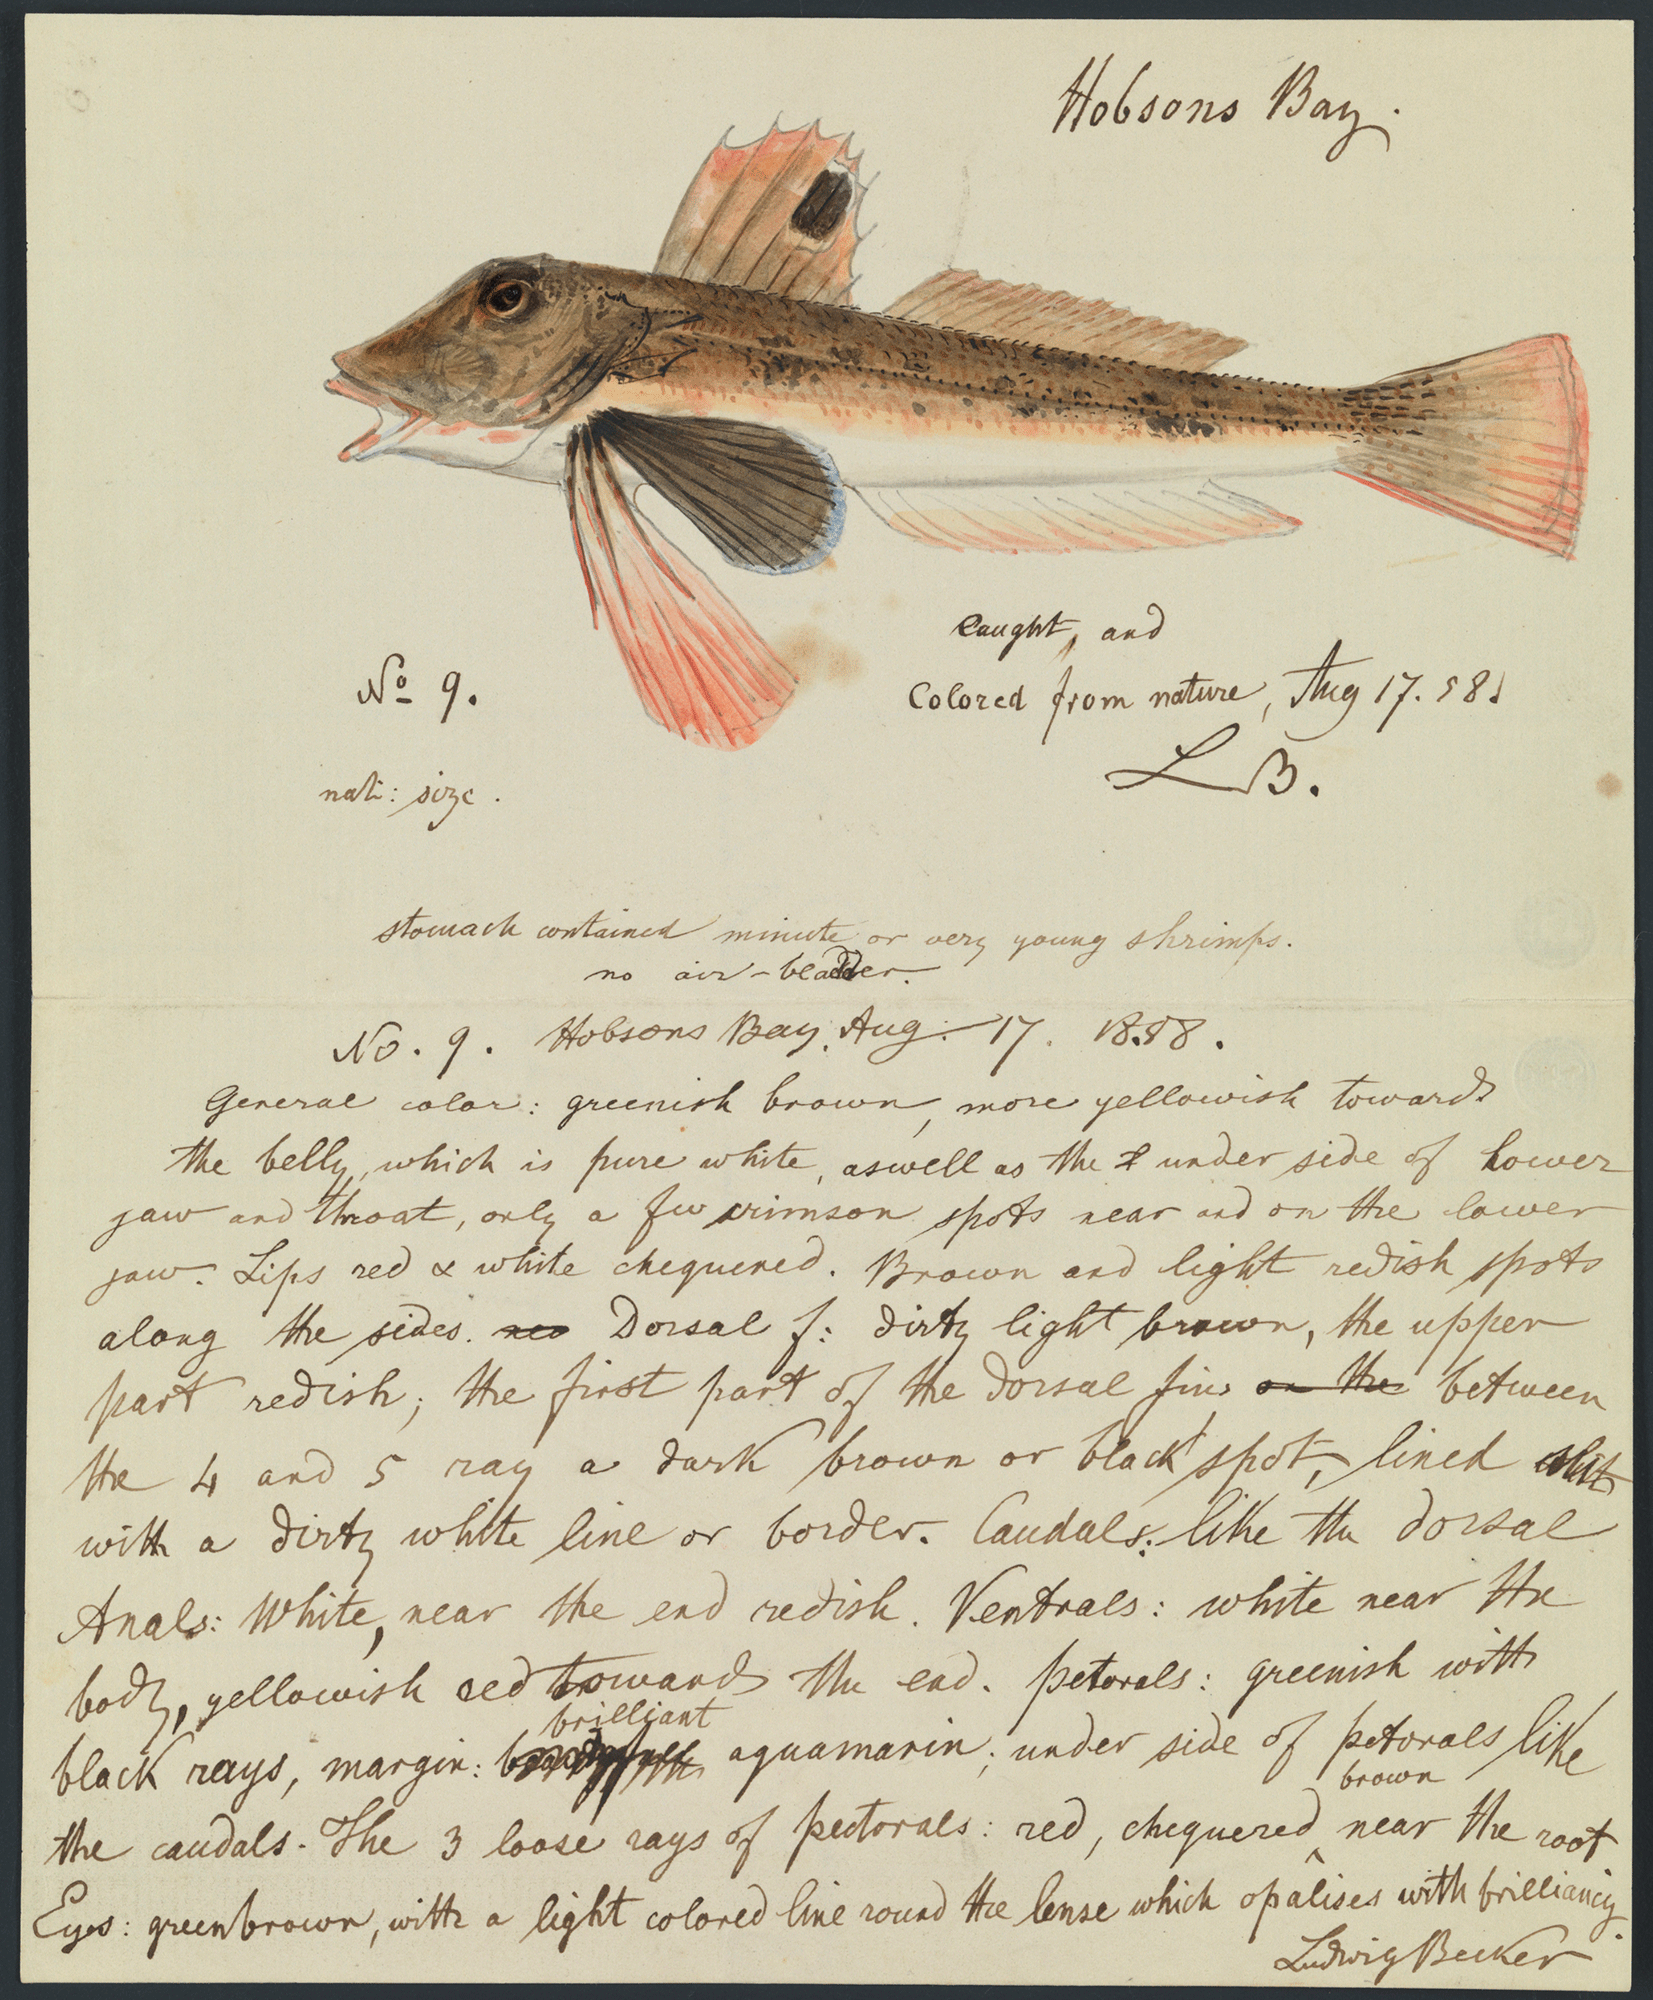 Hobsons Bay.
Caught, and
Colored from nature, Aug 17. 58.
L B.
No 9.
nat: size.
stomach contained minute or very young shrimps.
no air-bladder.
No. 9. Hobsons Bay, Aug. 17. 1858.
General color: greenish brown, more yellowish towards
the belly, which is pure white, aswell as the under side of lower
jaw and throat, only a few crimson spots near and on the lower
jaw. Lips red & white chequered. Brown and light redish spots
along the sides. Dorsal f: dirty light brown, the upper
part redish; the first part of the dorsal fin, on the between
the 4 and 5 ray a dark brown or black spot, lined
with a dirty white line or border. Caudals: like the dorsal
Anals: White, near the end redish. Ventrals: white near the
body, yellowish red towards the end. petorals: greenish with
brilliant
black rays, margin: aquamarin; under side of petorals like
brown
the caudals. The 3 loose rays of pectorals: red, chequered near the root
Eyes: greenbrown, with a light colored line round the lense which opalises with brilliancy.
Ludwig Becker